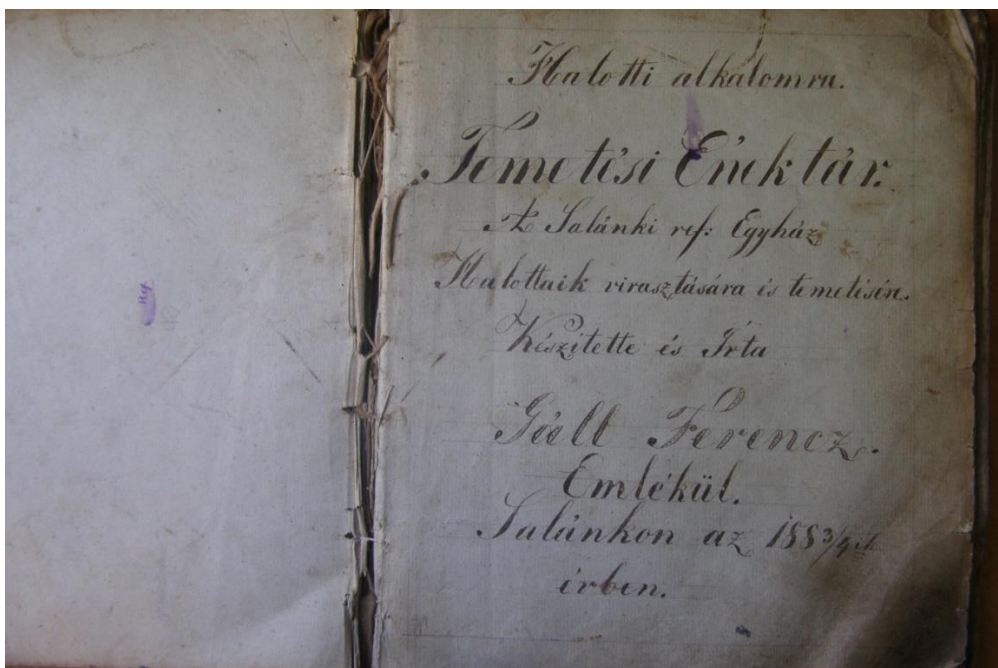 Halotti alkalomra.
Temetési Énektár.
A Salánki ref: Egyház
Halottaik virasztására és temetésén.
Készitette és Írta
Gáll Ferencz.
Emlékül.
Salánkon az 1883/4ik
évben.